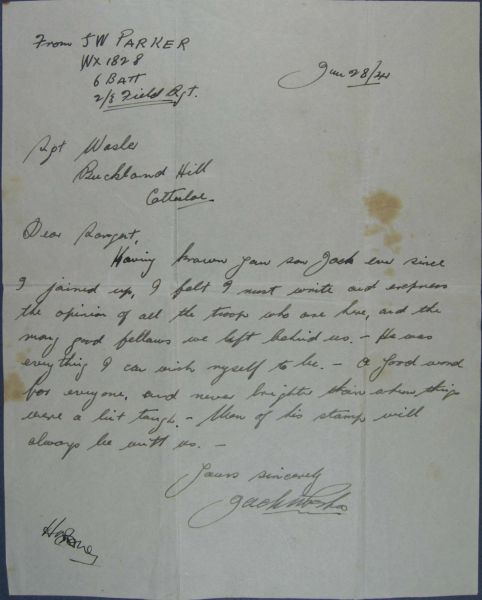 From J W PARKER
WX 1828
6 BATT
2/3 Field Rgt.
Jan 28/41
Sgt Wasley
Buckland Hill
Cottesloe
Dear Sargent,
Having known your son Jack ever since
I joined up, I felt I must write and express
the opinion of all the troops who are here, and the
many good fellows we left behind us. - He was
everything I can wish myself to be. - A good word
for everyone, and never brighter than when things
were a bit tough. - Men of his stamp will
always be with us. -
Yours sincerely
Jack